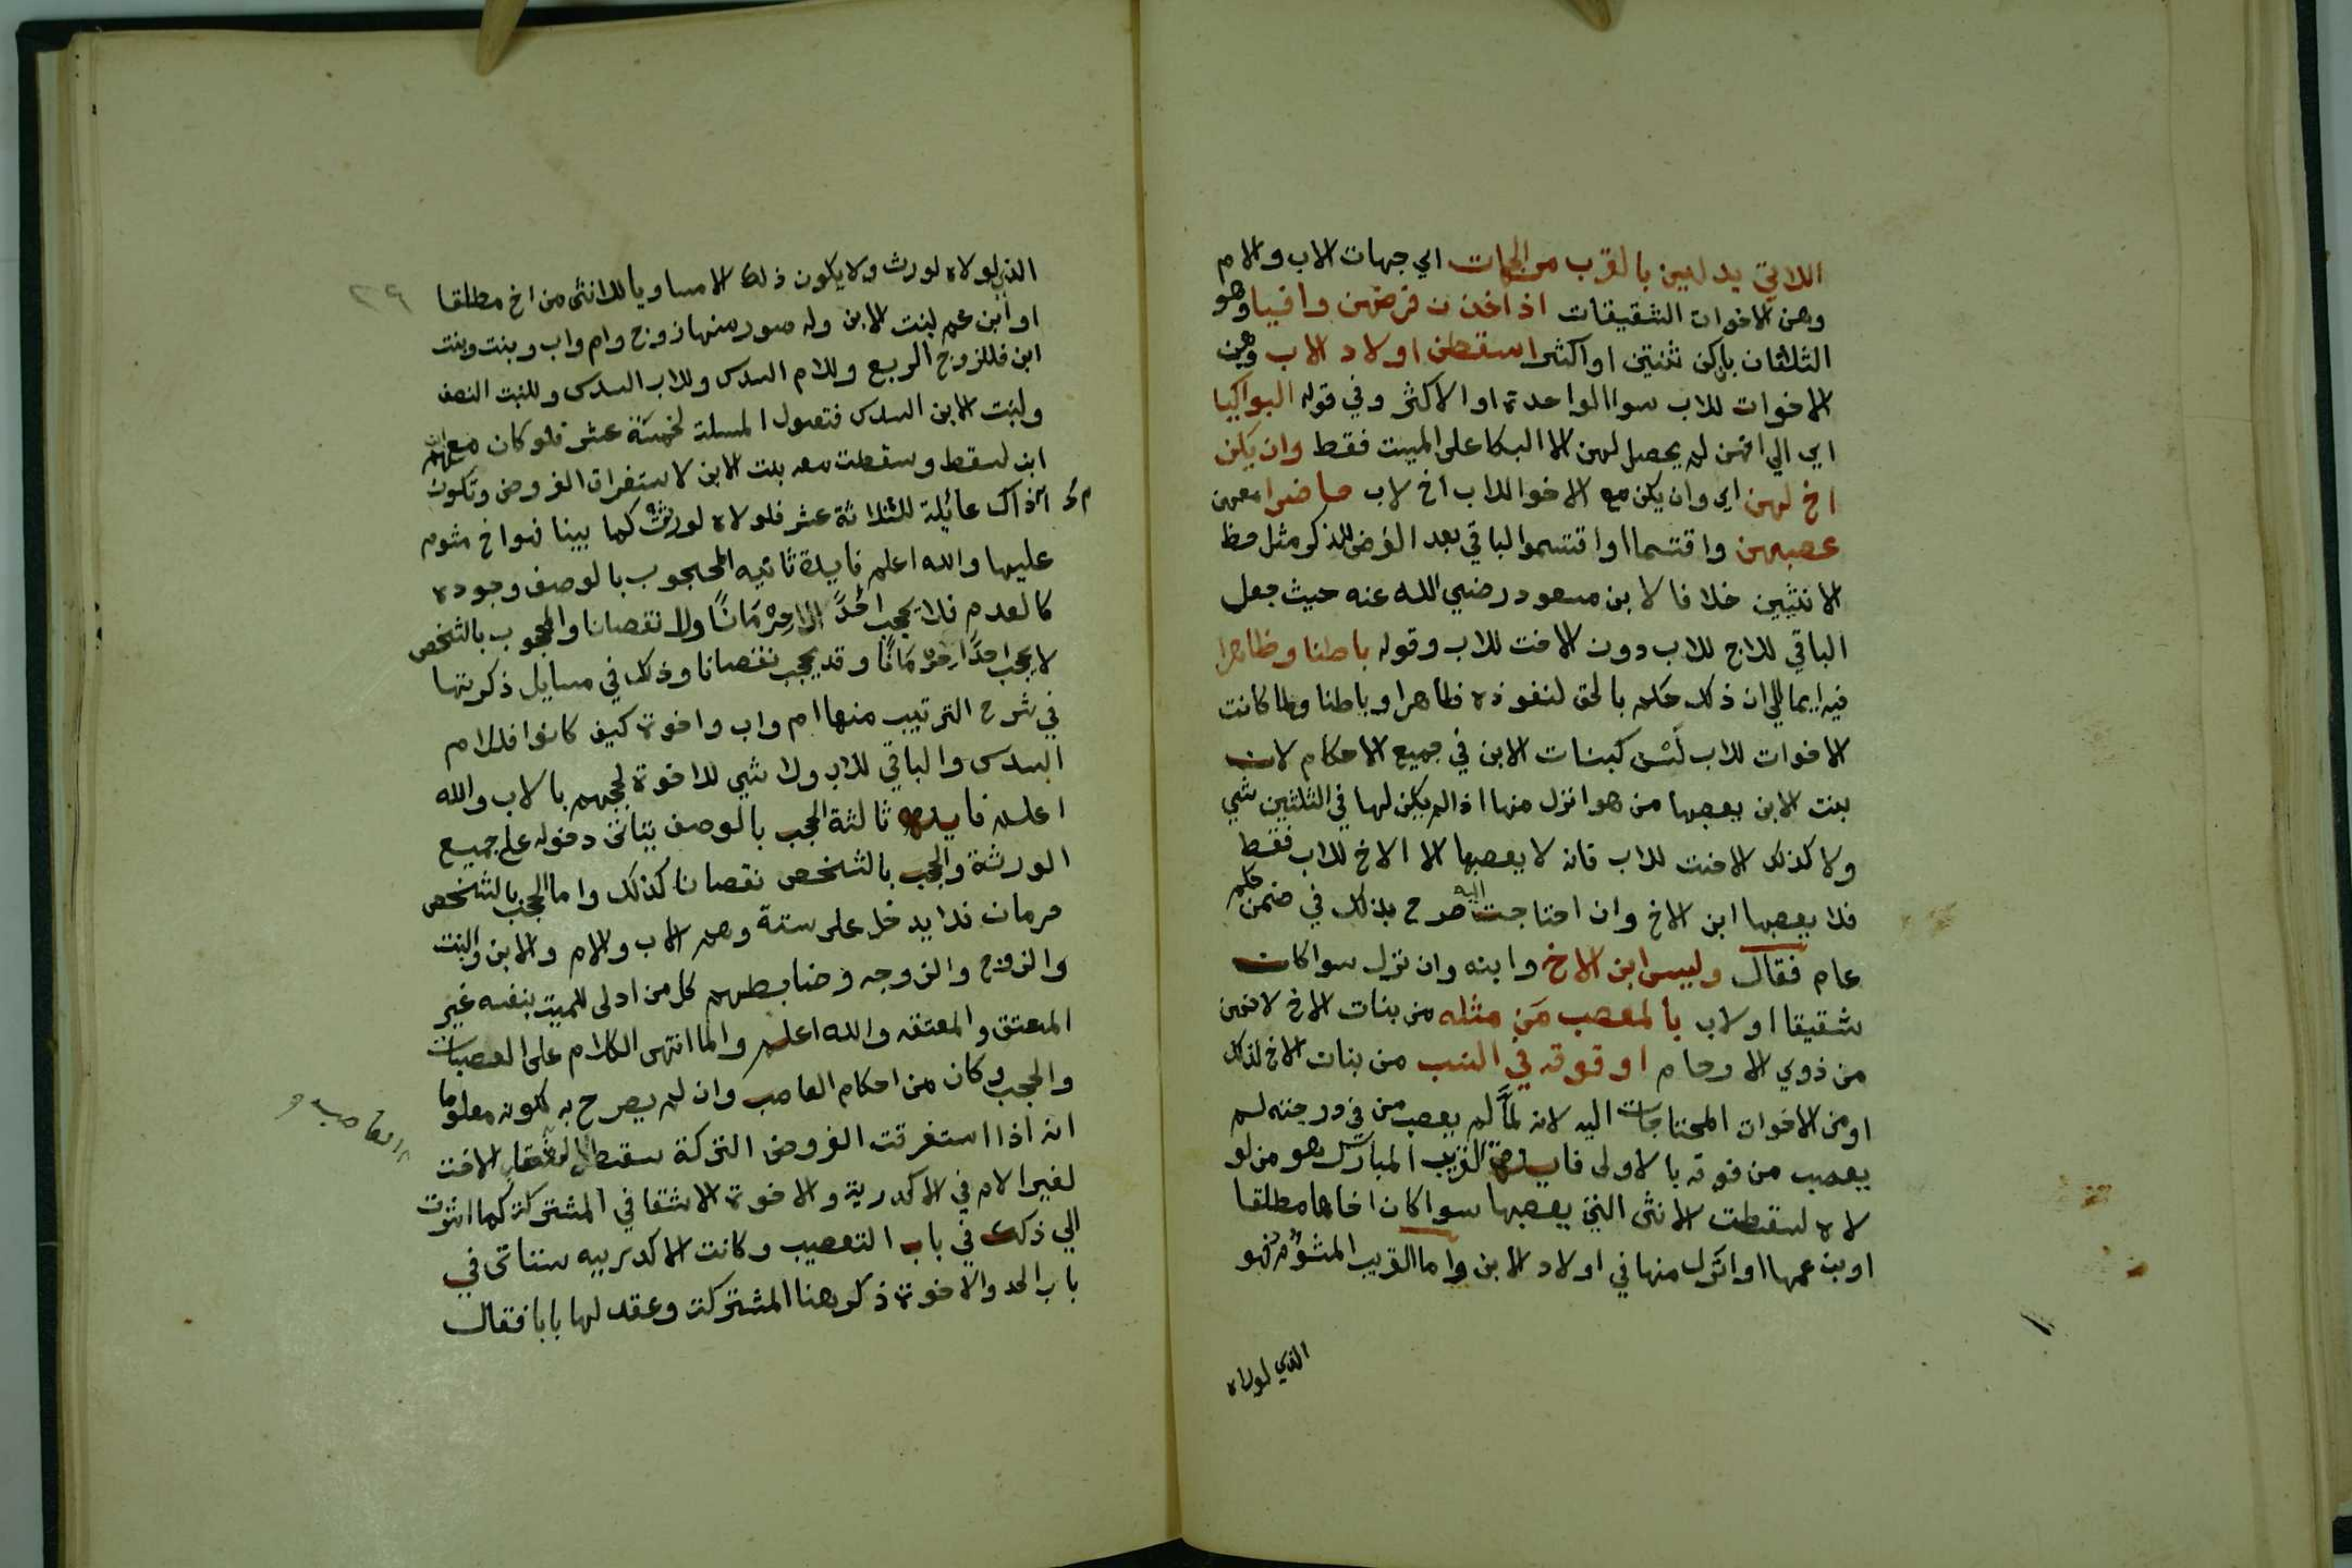 اللاتي يدلين بالقرب من الجهات اي جهات الاب والام
وهن الاخوات الشقيقات اذا اخذن فرضهن وافيا وهو
الثلثان بان كن ثنتين او اكثر اسقطن اولاد الاب وهن
الاخوات للاب سوا الواحدة او الاكثر وفي قوله البواكيا
اي الي انهن لم يحصل لهن الا البكا على الميت فقط وان يكن
اخ لهن اي وان يكن مع الاخوا للاب اخ لاب حاضرا معهن
عصبهن واقتسما او اقتسموا الباقي بعد الفرض للذكر مثل حظ
الانثيين خلافا لابن مسعود رضي الله عنه حيث جعل
الباقي للاخ للاب دون الاخت للاب وقوله باطنا وظاهرا
فيه ايما الي ان ذلك حكم بالحق لنفوذه ظاهرا وباطنا ولما كانت
الاخوات للاب لسن كبنات الابن في جميع الاحكام لان
بنت الابن يعصبها من هو انزل منها اذا لم يكن لها في الثلثين شي
ولا كذلك الاخت للاب فانه لا يعصبها الا الاخ للاب فقط
فلا يعصبها ابن الاخ وان احتاجت اليه صرح بذلك في ضمن حكم
عام فقال وليس ابن الاخ وابنه وان نزل سوا كان
شقيقا او لاب بالمعصب من مثله من بنات الاخ لانهن
من ذوي الارحام او فوقه في النسب من بنات الاخ لذلك
او من الاخوات المحتاجات اليه لانه لما لم يعصب من في درجته لم
يعصب من فوقه بالاولى فايدة القريب المبارك هو من لو
لاه لسقطت الانثى التي يعصبها سوا كان اخاها مطلقا
او ابن عمها او انزل منها في اولاد الابن واما القريب المشؤم فهو
الذي لولاه
٢٩
الذي لولاه لورث ولا يكون ذلك الا مساويا للانثى من اخ مطلقا
او ابن عم لبنت الابن وله صور منها زوج وام واب وبنت وبنت
ابن فللزوج الربع وللام السدس وللاب السدس وللبنت النصف
ولبنت الابن السدس فتعول المسلة لخمسة عشر فلو كان معهم
ابن لسقط وسقطت معه بنت الابن لاستغراق الفروض وتكون
اذ اك عائلة لثلاثة عشر فلولاه لورثت كما بينا فهو اخ مشوم
عليها والله اعلم فايدة ثانيه المحجوب بالوصف وجوده
كالعدم فلا يحجب احدا لا حرمانا ولا نقصانا والمحجوب بالشخص
لا يحجب احدا حرمانا وقد يحجب نقصانا وذلك في مسايل ذكرتها
في شرح الترتيب منها ام واب واخوة كيف كانوا فللام
السدس والباقي للاب ولا شي للاخوة لحجبهم بالاب والله
اعلم فايدة ثالثة الحجب بالوصف يتاتى دخوله على جميع
الورثة والحجب بالشخص نقصانا كذلك واما الحجب بالشخص
حرمان فلا يدخل على ستة وهم الاب والام والابن والبنت
والزوج والزوجه وضابطهم كل من ادلى للميت بنفسه غير
المعتق والمعتقه والله اعلم ولما انتهى الكلام على العصبات
والحجب وكان من احكام العاصب وان لم يصرح به لكونه معلوما
انه اذا استغرقت الفروض التركة سقط الا الاخت
لغير الام في الاكدرية والاخوة الاشقا في المشتركة كما اشرت
الي ذلك في باب التعصيب وكانت الاكدريه ستاتى في
باب الجد والاخوة ذكر هنا المشتركة وعقد لها بابا فقال